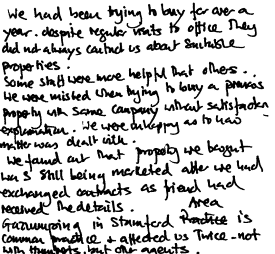 We had been trying to buy for over a
year. despite regular visits to office They
did not always contact us about suitable
properties.
Some staff were more helpful that others..
We were misled when trying to buy a previous
property with same company without satisfactory
explanation. We were unhappy as to how
matter was dealt with.
We found out that property we bought
was still being marketed after we had
exchanged contracts as friend had
received the details. Area
Gazumping in Stamford Practice is
common practice & affected us Twice - not
with but other agents.